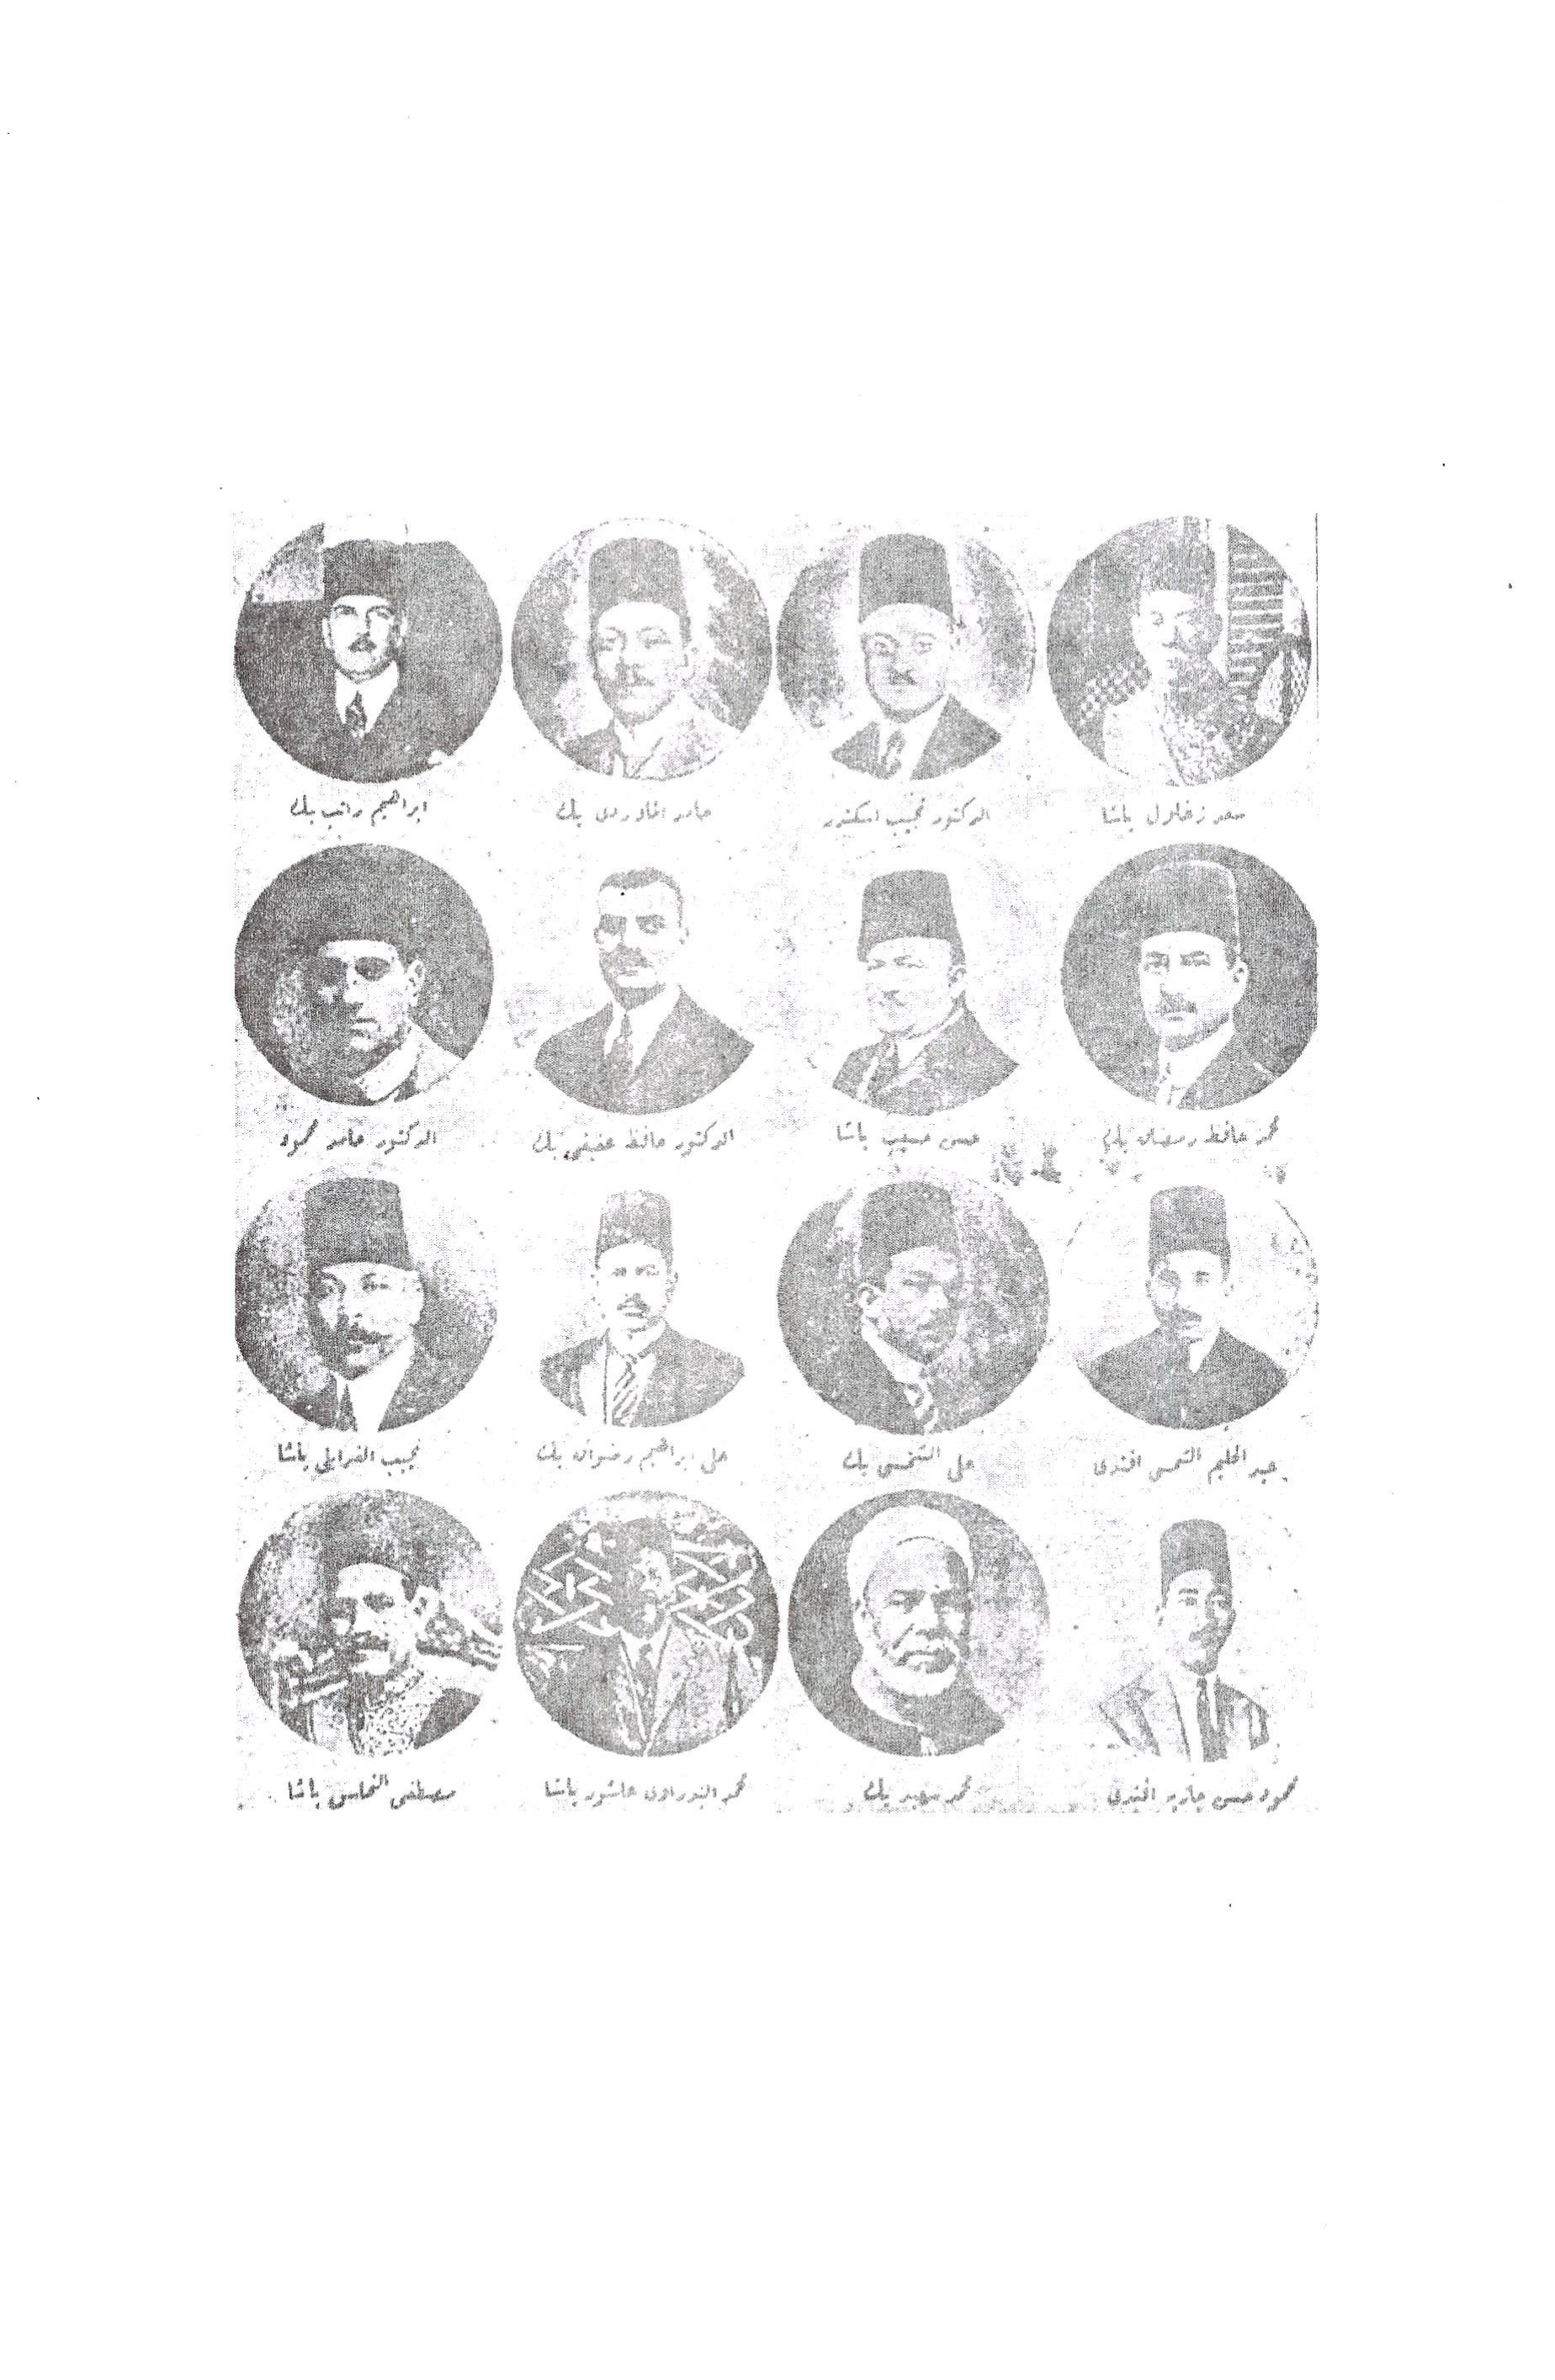 سعد زغلول باشا
الدكتور نجيب اسكندر
حامد الماوردى بك
ابراهيم راتب بك
محمد حافظ رمضان بك
حسن حسيب باشا
الدكتور حافظ عفيفى بك
الدكتور حامد محمود
عبد الحليم الشمسى افندى
على الشمسى بك
على ابراهيم رضوان بك
نجيب الغرابلى باشا
محمود حسن جاويد افندى
محمد سعيد بك
محمد البدراوى عاشور باشا
مصطفى النحاس باشا